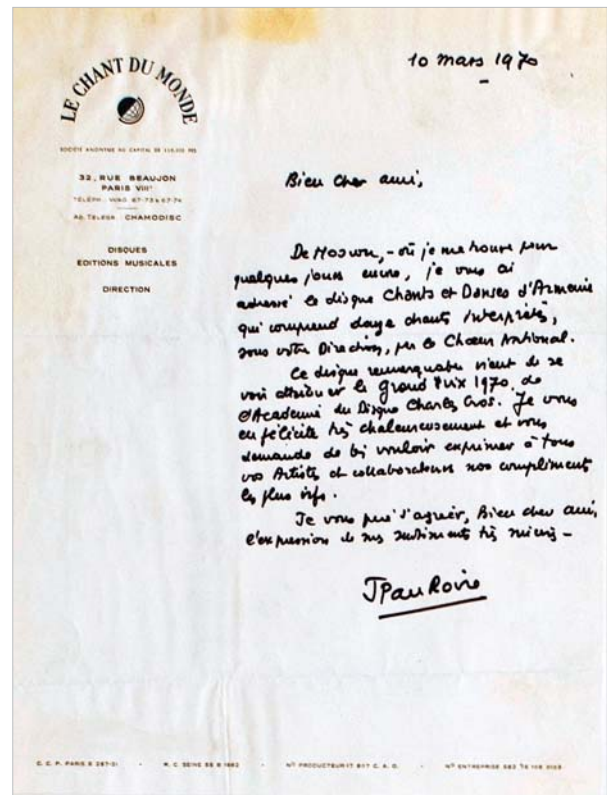 LE CHANT DU MONDE
10 mars 1970
SOCIÉTÉ ANONYME AU CAPITAL DE
32, RUE BEAUJON
PARIS VIIIe
TÉLÉPH. WAG. 67-73 & 67-74
AD. TÉLÉGR. CHAMODISC
DISQUES
EDITIONS MUSICALES
DIRECTION
Bien cher ami,
De Moscou, - où je me trouve pour
quelques jours encore, je vous ai
adressé le disque Chants et Danses d'Arménie
qui comprend douze chants interprétés,
sous votre Direction, par le Chœur National.
Ce disque remarquable vient de se
voir attribuer le Grand Prix 1970 de
l'Académie du Disque Charles Cros. Je vous
en félicite très chaleureusement et vous
demande de bien vouloir exprimer à tous
vos Artistes et collaborateurs nos compliments
les plus vifs.
Je vous prie d'agréer, Bien cher ami,
l'expression de mes sentiments très
J Pau Roire
C. C. P. PARIS
R. C. SEINE
N° PRODUCTEUR
N° ENTREPRISE